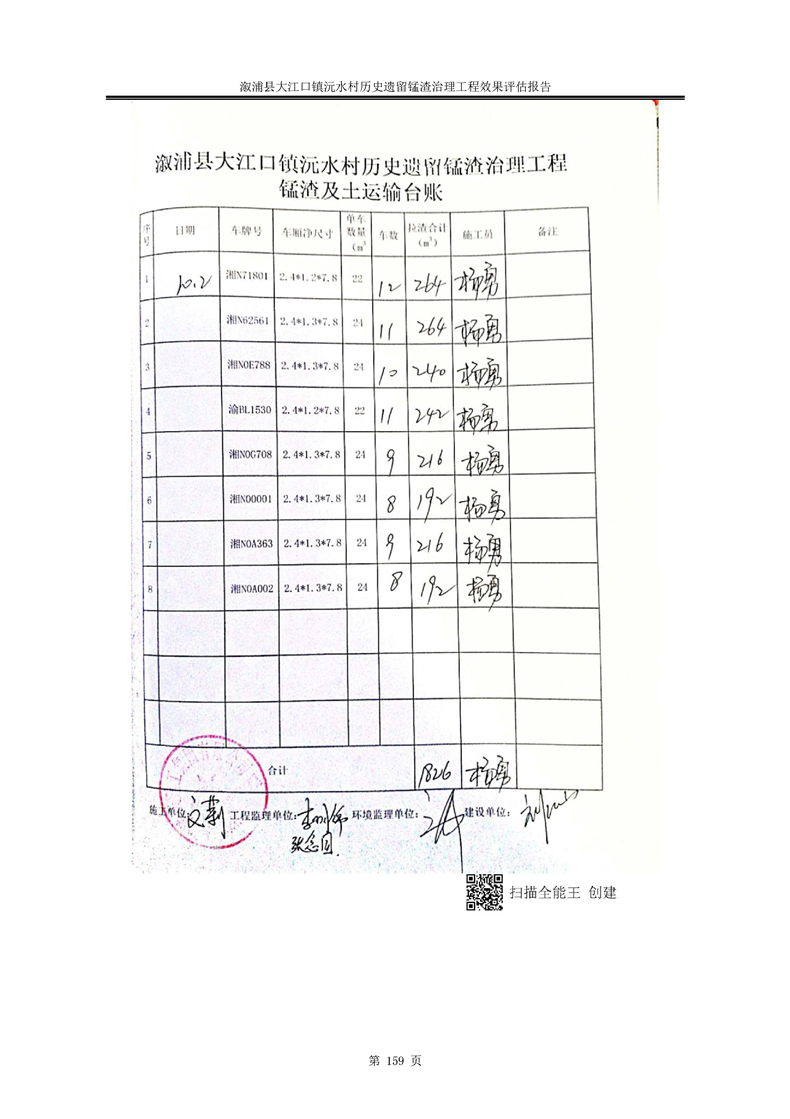 溆浦县大江口镇沅水村历史遗留锰渣治理工程效果评估报告
溆浦县大江口镇沅水村历史遗留锰渣治理工程
锰渣及土运输台账
序号 日期 车牌号 车厢净尺寸 单车数量(m³) 车数 拉渣合计(m³) 施工员 备注
1 10.2 湘N71801 2.4*1.2*7.8 22 12 264 杨勇
2 湘N62561 2.4*1.3*7.8 24 11 264 杨勇
3 湘N0E788 2.4*1.3*7.8 24 10 240 杨勇
4 渝BL1530 2.4*1.2*7.8 22 11 242 杨勇
5 湘N0G708 2.4*1.3*7.8 24 9 216 杨勇
6 湘N00001 2.4*1.3*7.8 24 8 192 杨勇
7 湘N0A363 2.4*1.3*7.8 24 9 216 杨勇
8 湘N0A002 2.4*1.3*7.8 24 8 192 杨勇
合计 1826 杨勇
施工单位: 工程监理单位: 环境监理单位: 建设单位:
扫描全能王 创建
第 159 页